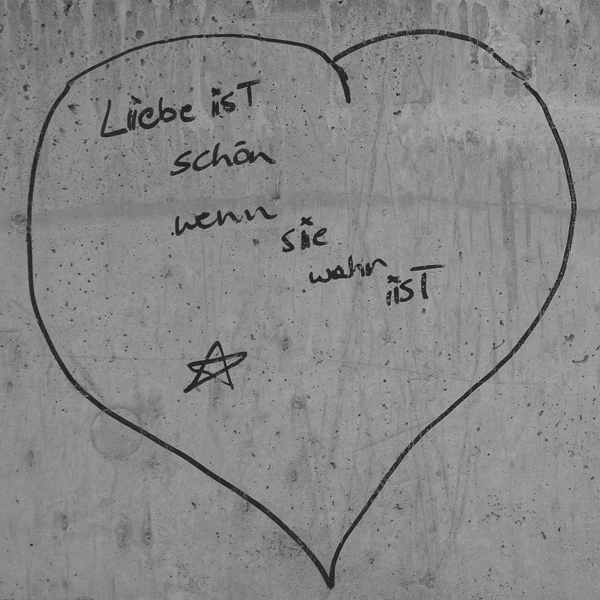 Liebe ist
schön
wenn
sie
wahr
ist